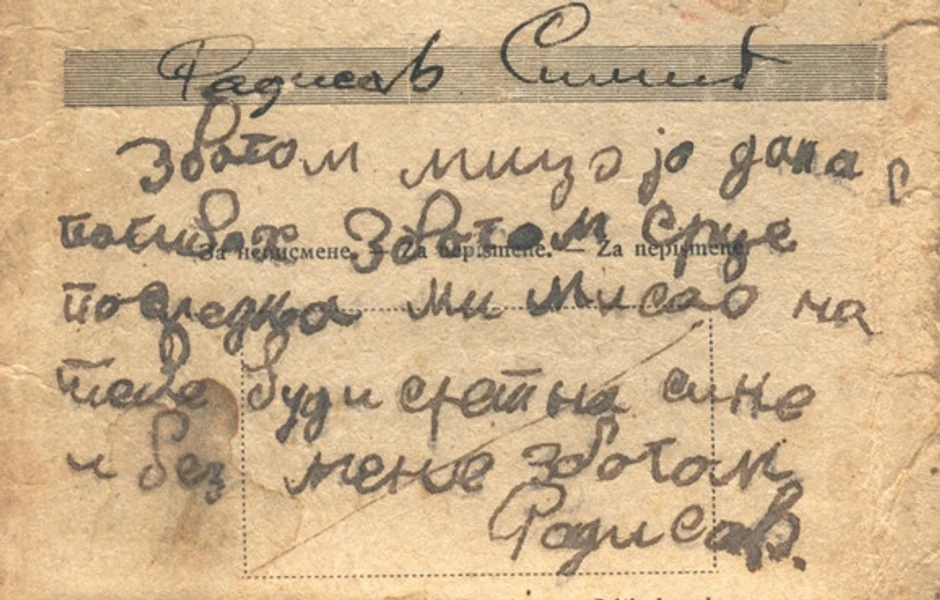 Радисав Симић
Збогом мицо ја данас
погибох Збогом срце
За неписмене. — Za nepismene. — Za nepismene.
последња ми мисао на
тебе буди сретна сине
и без мене збогом
Радисав.